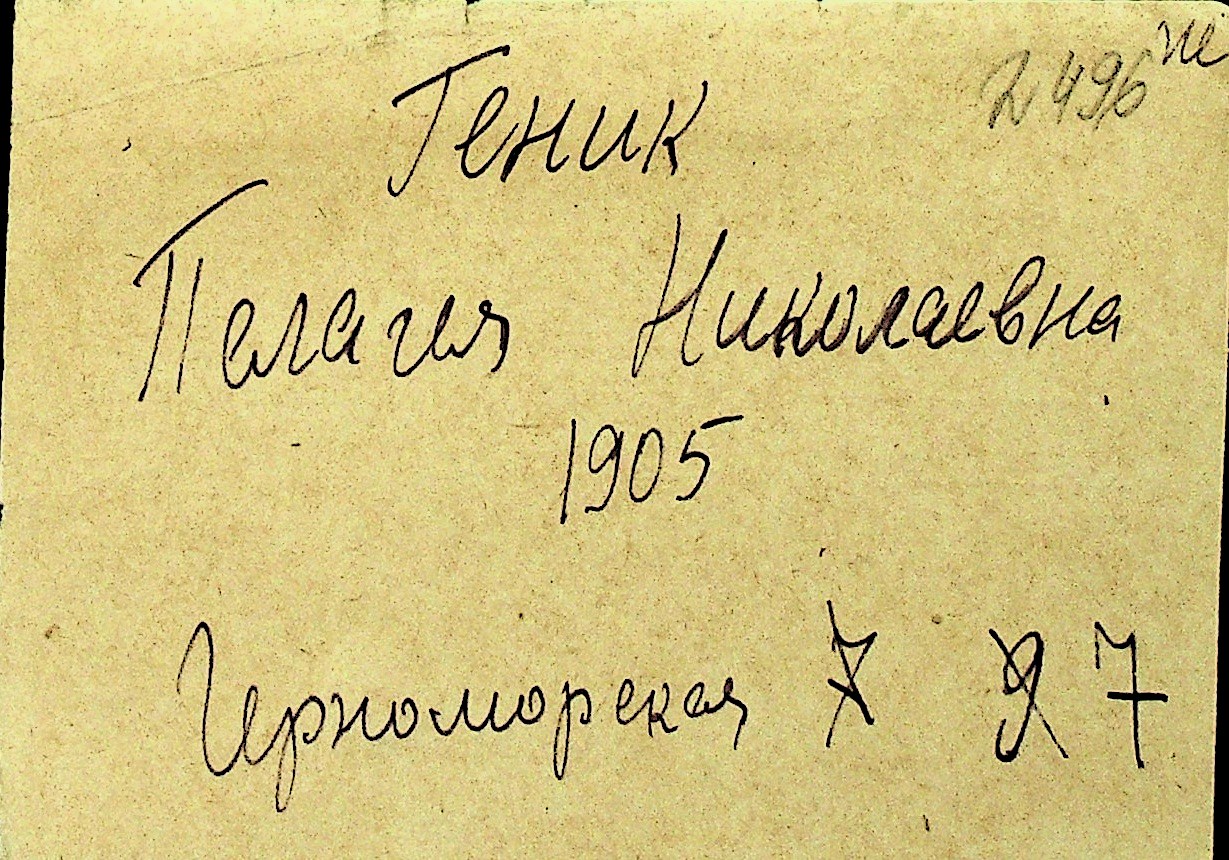 2496
Геник
Пелагия Николаевна
1905
Черноморская 7 9 7